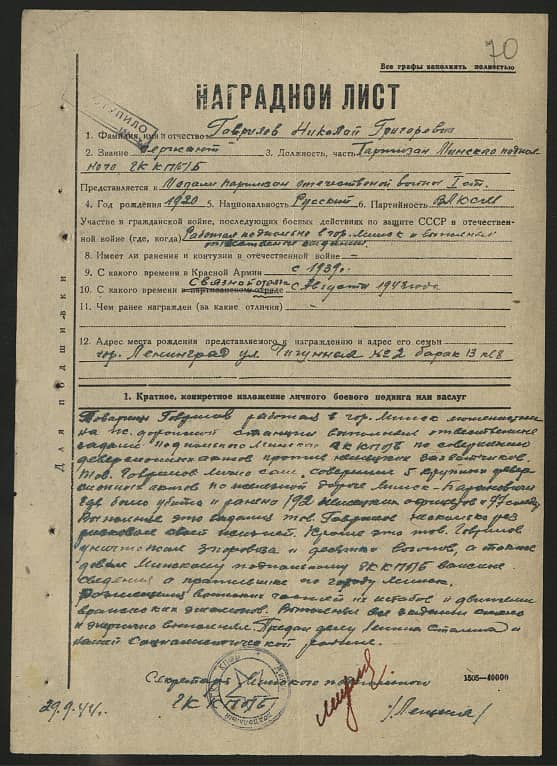 70
Все графы заполнять полностью
НАГРАДНОЙ ЛИСТ
СТУПИЛО
1. Фамилия, имя и отчество Гаврилов Николай Григорович
2. Звание Сержант 3. Должность, часть Партизан Минского подполь-
ного ГК КПБ/Б
Представляется к Медали партизан отечественой войны I ст.
4. Год рождения 1920 5. Национальность Русский 6. Партийность ВЛКСМ
Участие в гражданской войне, последующих боевых действиях по защите СССР в отечествен-
ной войне (где, когда) Работал подпольно в гор. Минск и выполнял
ответственые задания
8. Имеет ли ранения и контузии в отечественной войне –
9. С какого времени в Красной Армии с 1939г.
Связной отряда
10. С какого времени в партизанском отряде с Августа 1943 года
11. Чем ранее награжден (за какие отличия)
12. Адрес места рождения представляемого к награждению и адрес его семьи
гор. Ленинград ул. №2 барак 13 к 68
Для подшивки
1. Краткое, конкретное изложение личного боевого подвига или заслуг
Товарищ Гаврилов работая в гор. Минск
на ж. дорожной станции выполнял ответственные
задания подпольного Минского ГК КПБ/Б по совершению
диверсионных актов против немецких захватчиков.
Тов. Гаврилов лично сам совершил 5 крупных дивер-
сионных актов по железной дороге Минск-Барановичи
где было убито и ранено 192 немецких офицеров и 77 солдат
Выполняя это задание тов. Гаврилов несколько раз
рисковал своей жизней. Кроме это тов. Гаврилов
уничтожал паровоза и десятки вагонов, а также
давал Минскому подпольному ГК КПБ/Б
сведения о противнике по городу Минск.
Размещения воинских частей их штабов и движении
вражеских эшелонов. Выполнял все задания смело
и энергично. Предан делу Ленина Сталина и
нашей Социалистической родине.
Секретарь Минского подпольного
ГК КПБ/Б
1505—40000
29.9.44г.